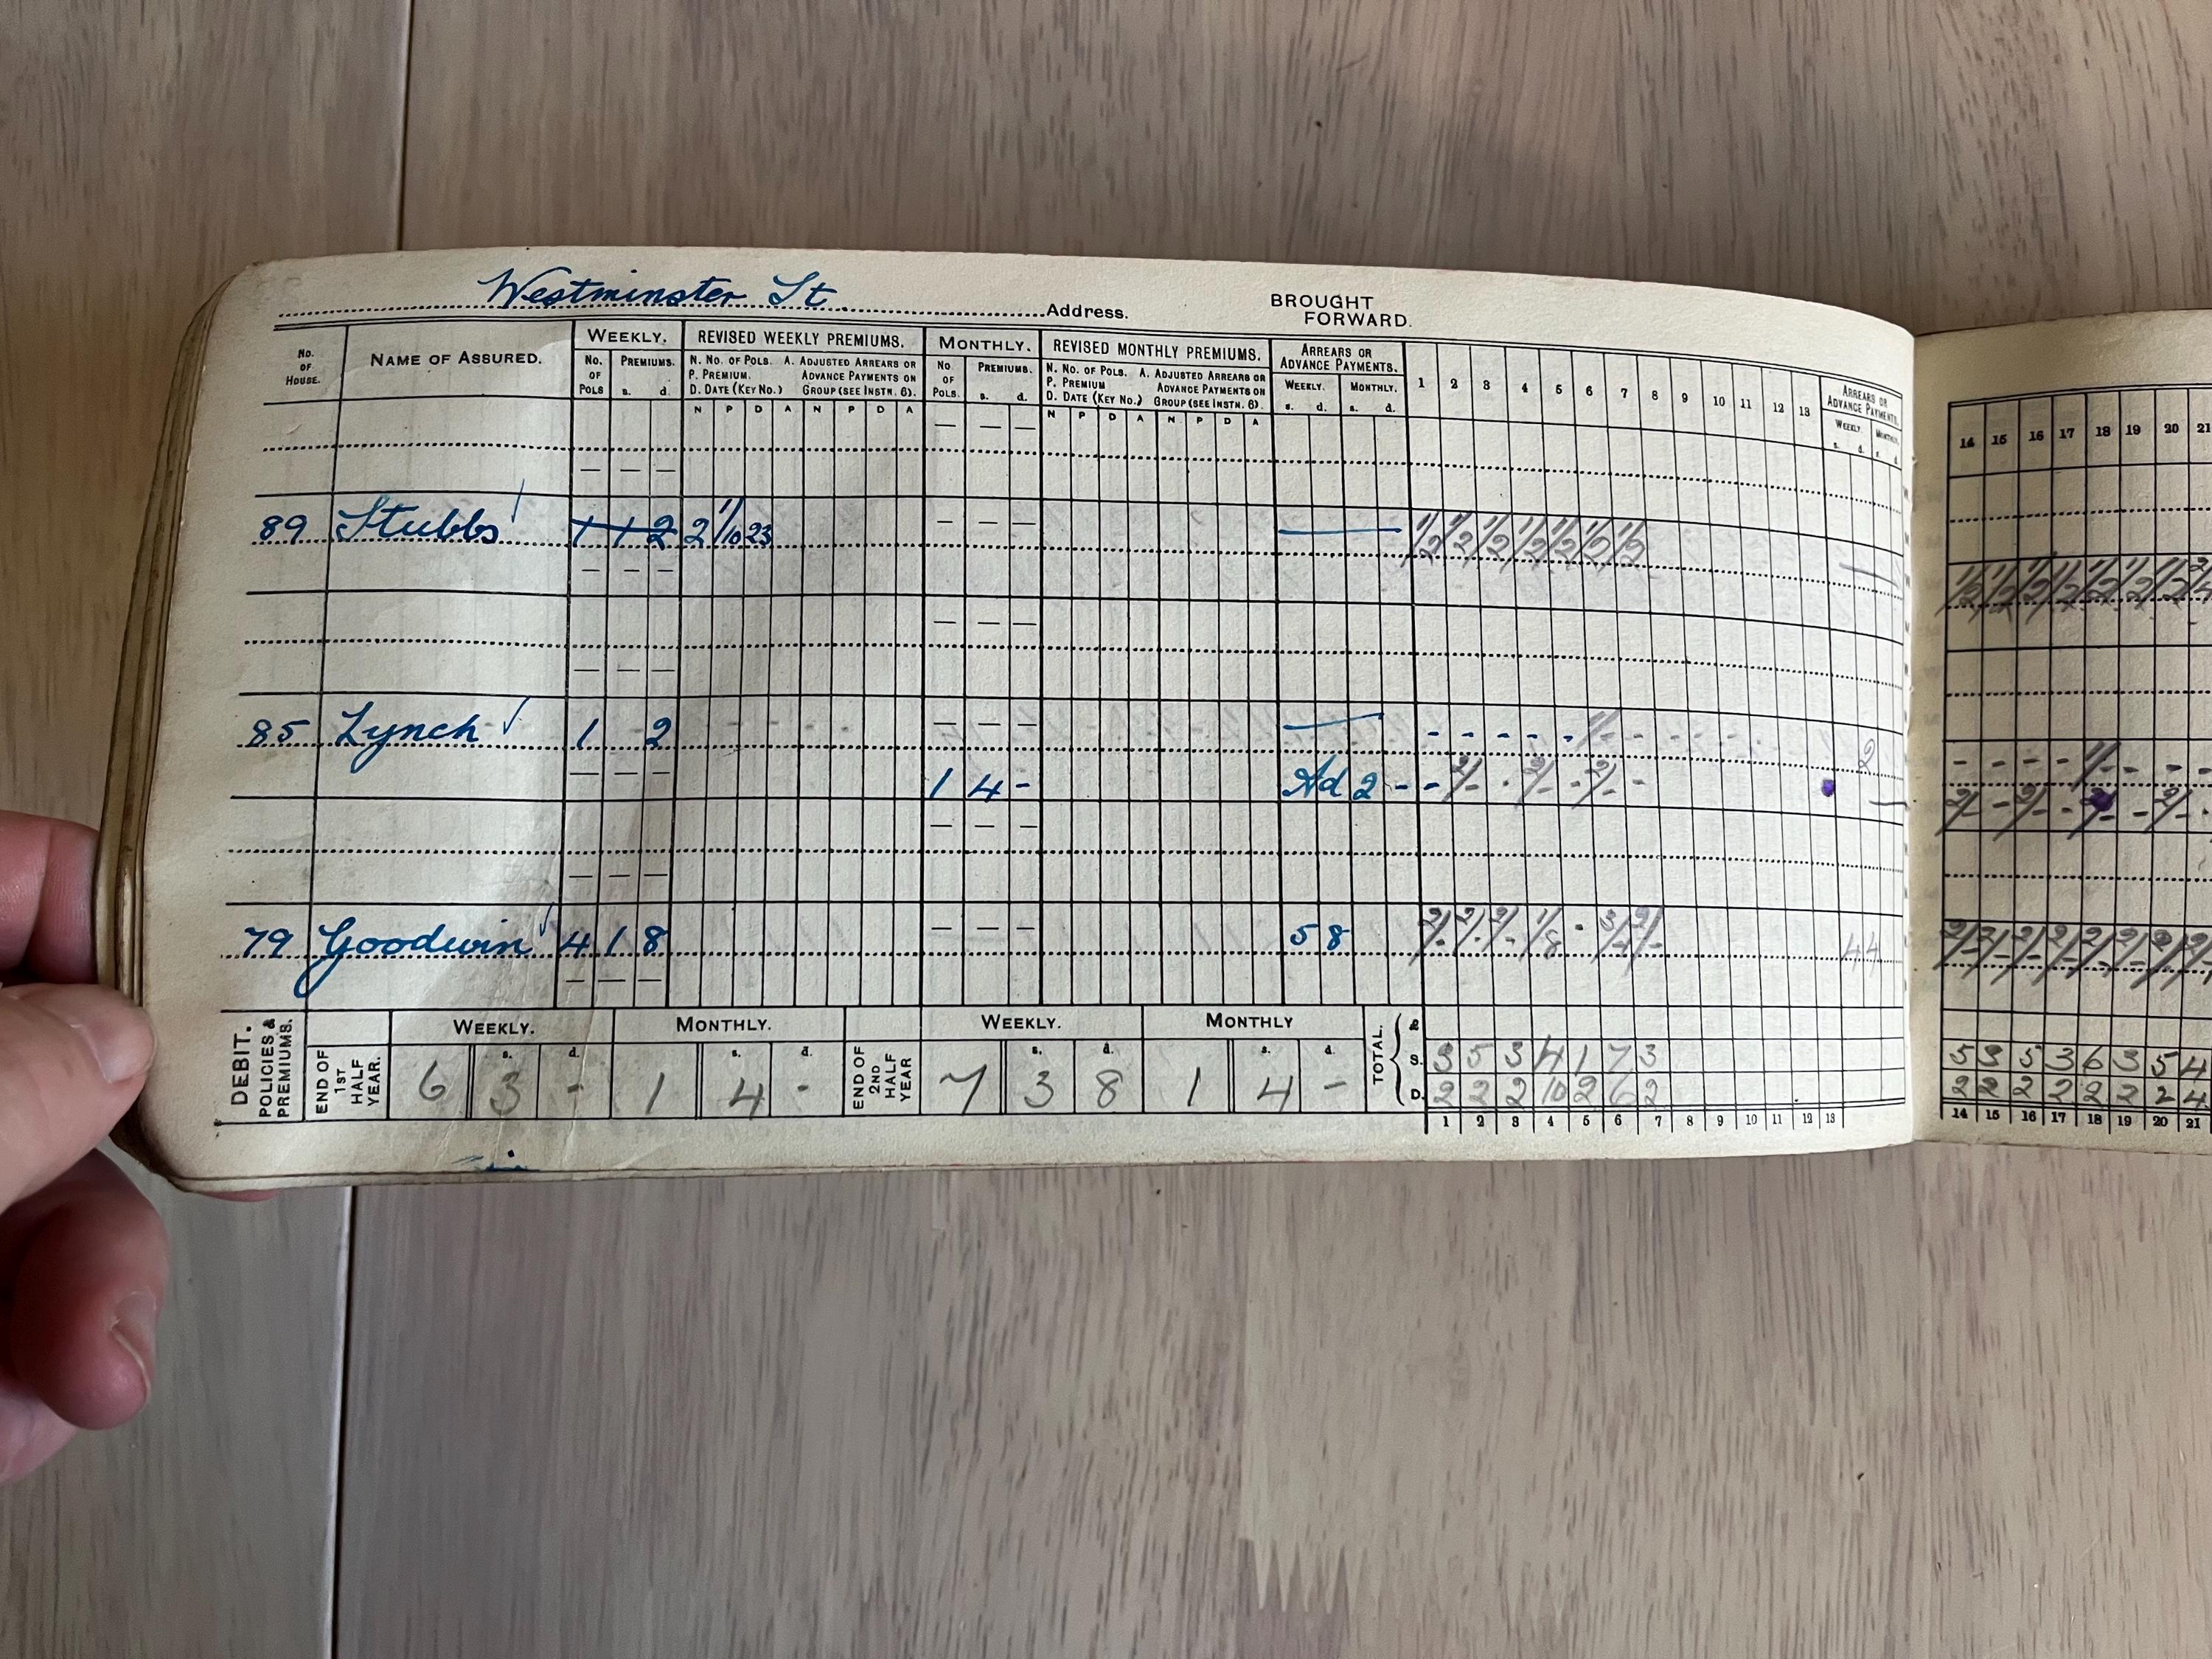 Westminster St Address. BROUGHT
FORWARD.
No. OF HOUSE. NAME OF ASSURED. WEEKLY. REVISED WEEKLY PREMIUMS. MONTHLY. REVISED MONTHLY PREMIUMS. ARREARS OR ADVANCE PAYMENTS. 1 2 3 4 5 6 7 8 9 10 11 12 13 ARREARS OR ADVANCE PAYMENTS
No. OF POLS PREMIUMS. s. d. N. No. OF POLS. A. ADJUSTED ARREARS OR No. OF POLS. PREMIUMS. s. d. N. No. OF POLS. A. ADJUSTED ARREARS OR WEEKLY. s. d. MONTHLY. s. d. WEEKLY. s. d. MONTHLY. s. d.
P. PREMIUM. ADVANCE PAYMENTS ON P. PREMIUM ADVANCE PAYMENTS ON
D. DATE (KEY No.) GROUP (SEE INSTN. 6). D. DATE (KEY No.) GROUP (SEE INSTN. 6).
N P D A N P D A N P D A N P D A
14 15 16 17 18 19 20 21
— — —
— — —
89 Stubbs 1 1 2 2 1/10 23 — — — — 1/2 1/2 1/2 1/2 1/2 1/2 1/2 — 1/2 1/2 1/2 1/2 1/2 1/2 1/2 2/4
— — —
— — —
— — —
85 Lynch 1 2 — — — — - - - - - 1/- - 2 - - - - 1/- - - -
— — — 1 4 - Ad 2 - - 2/- - 2/- - 2/- - — 2/- - 2/- - 2/- - 2/-
— — —
— — —
79 Goodwin 4 1 8 — — — 5 8 2/- 2/- 2/- 1/8 - 2/- 4 4 2/- 2/- 2/- 2/- 2/- 2/- 2/- 2/-
— — —
DEBIT. POLICIES & PREMIUMS. END OF 1ST HALF YEAR. WEEKLY. s. d. MONTHLY. s. d. END OF 2ND HALF YEAR WEEKLY. s. d. MONTHLY s. d. TOTAL. £
6 3 - 1 4 - 7 3 8 1 4 -
S. 3 5 3 4 1 7 3 5 3 5 3 6 3 5 4
D. 2 2 2 10 2 6 2 2 2 2 2 2 2 2 4
1 2 3 4 5 6 7 8 9 10 11 12 13 14 15 16 17 18 19 20 21